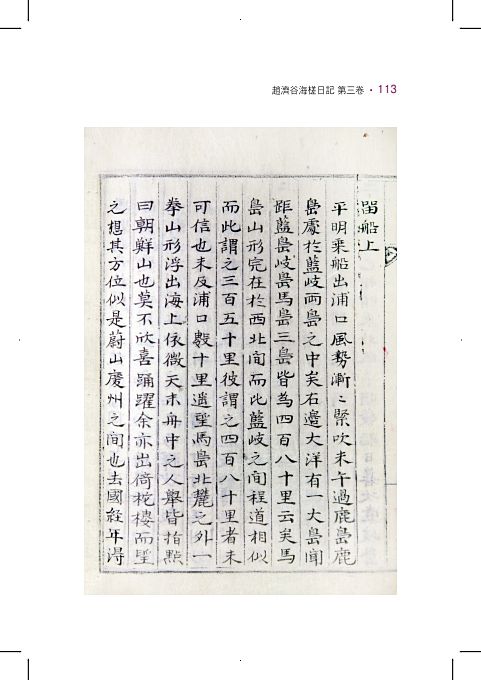 趙濟谷海槎日記 第三卷 · 113
留船上
平明乘船出浦口風勢漸〻緊吹未午過鹿㠀鹿
㠀處於藍歧兩㠀之中矣右邊大洋有一大㠀聞
距藍㠀歧㠀馬㠀三㠀皆為四百八十里云矣馬
㠀山形完在於西北間而此藍歧之間程道相似
而此謂之三百五十里彼謂之四百八十里者未
可信也未及浦口數十里遥望馬㠀北麓之外一
拳山形浮出海上依微天末舟中之人擧皆指點
曰朝鮮山也莫不欣喜踊躍余亦出倚柁樓而望
之想其方位似是蔚山慶州之間也去國經年淂